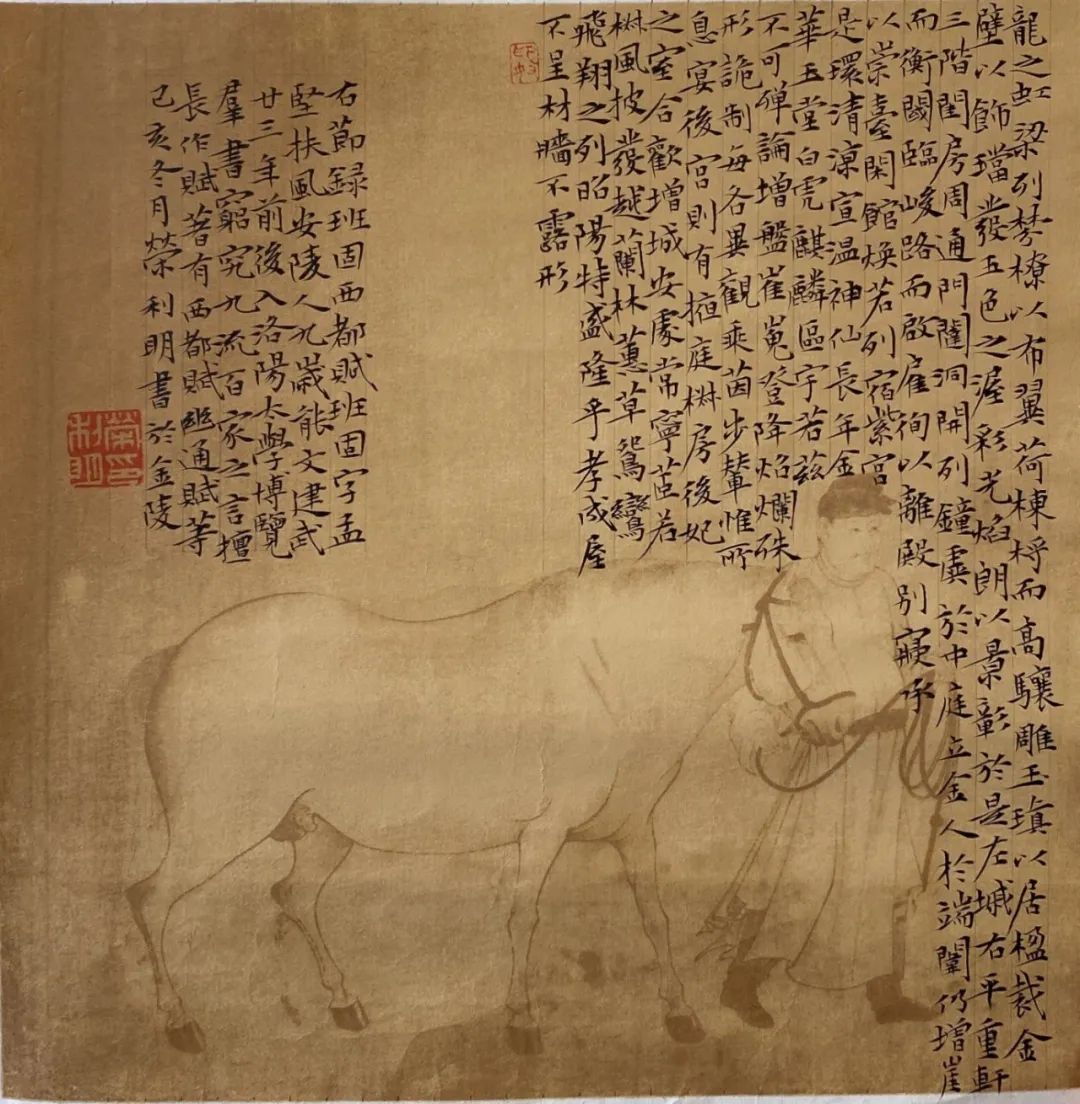 龍之虹梁列棼橑以布翼荷棟桴而高驤雕玉瑱以居楹裁金
壁以飾璫發五色之渥彩光焰朗以景彰於是左墄右平重軒
三階閨房周通門闥洞開列鐘虡於中庭立金人於端闈仍增崖
而衡閾臨峻路而啟扉徇以離殿別寢承
以崇臺閑館煥若列宿紫宮
是環清涼宣温神仙長年金
華玉堂白虎麒麟區宇若茲
不可殫論增盤崔嵬登降焰爛殊
形詭制每各異觀乘茵步輦惟所
息宴後宮則有掖庭椒房後妃
之室合歡增城安處常寧茝若
椒風披發越蘭林蕙草鴛鸞
飛翔之列昭陽特盛隆乎孝成屋
不呈材牆不露形
右節録班固西都賦班固字孟
堅扶風安陵人九歲能文建武
廿三年前後入洛陽太學博覽
羣書窮究九流百家之言擅
長作賦著有西都賦幽通賦等
己亥冬月榮利明書於金陵
榮印利明